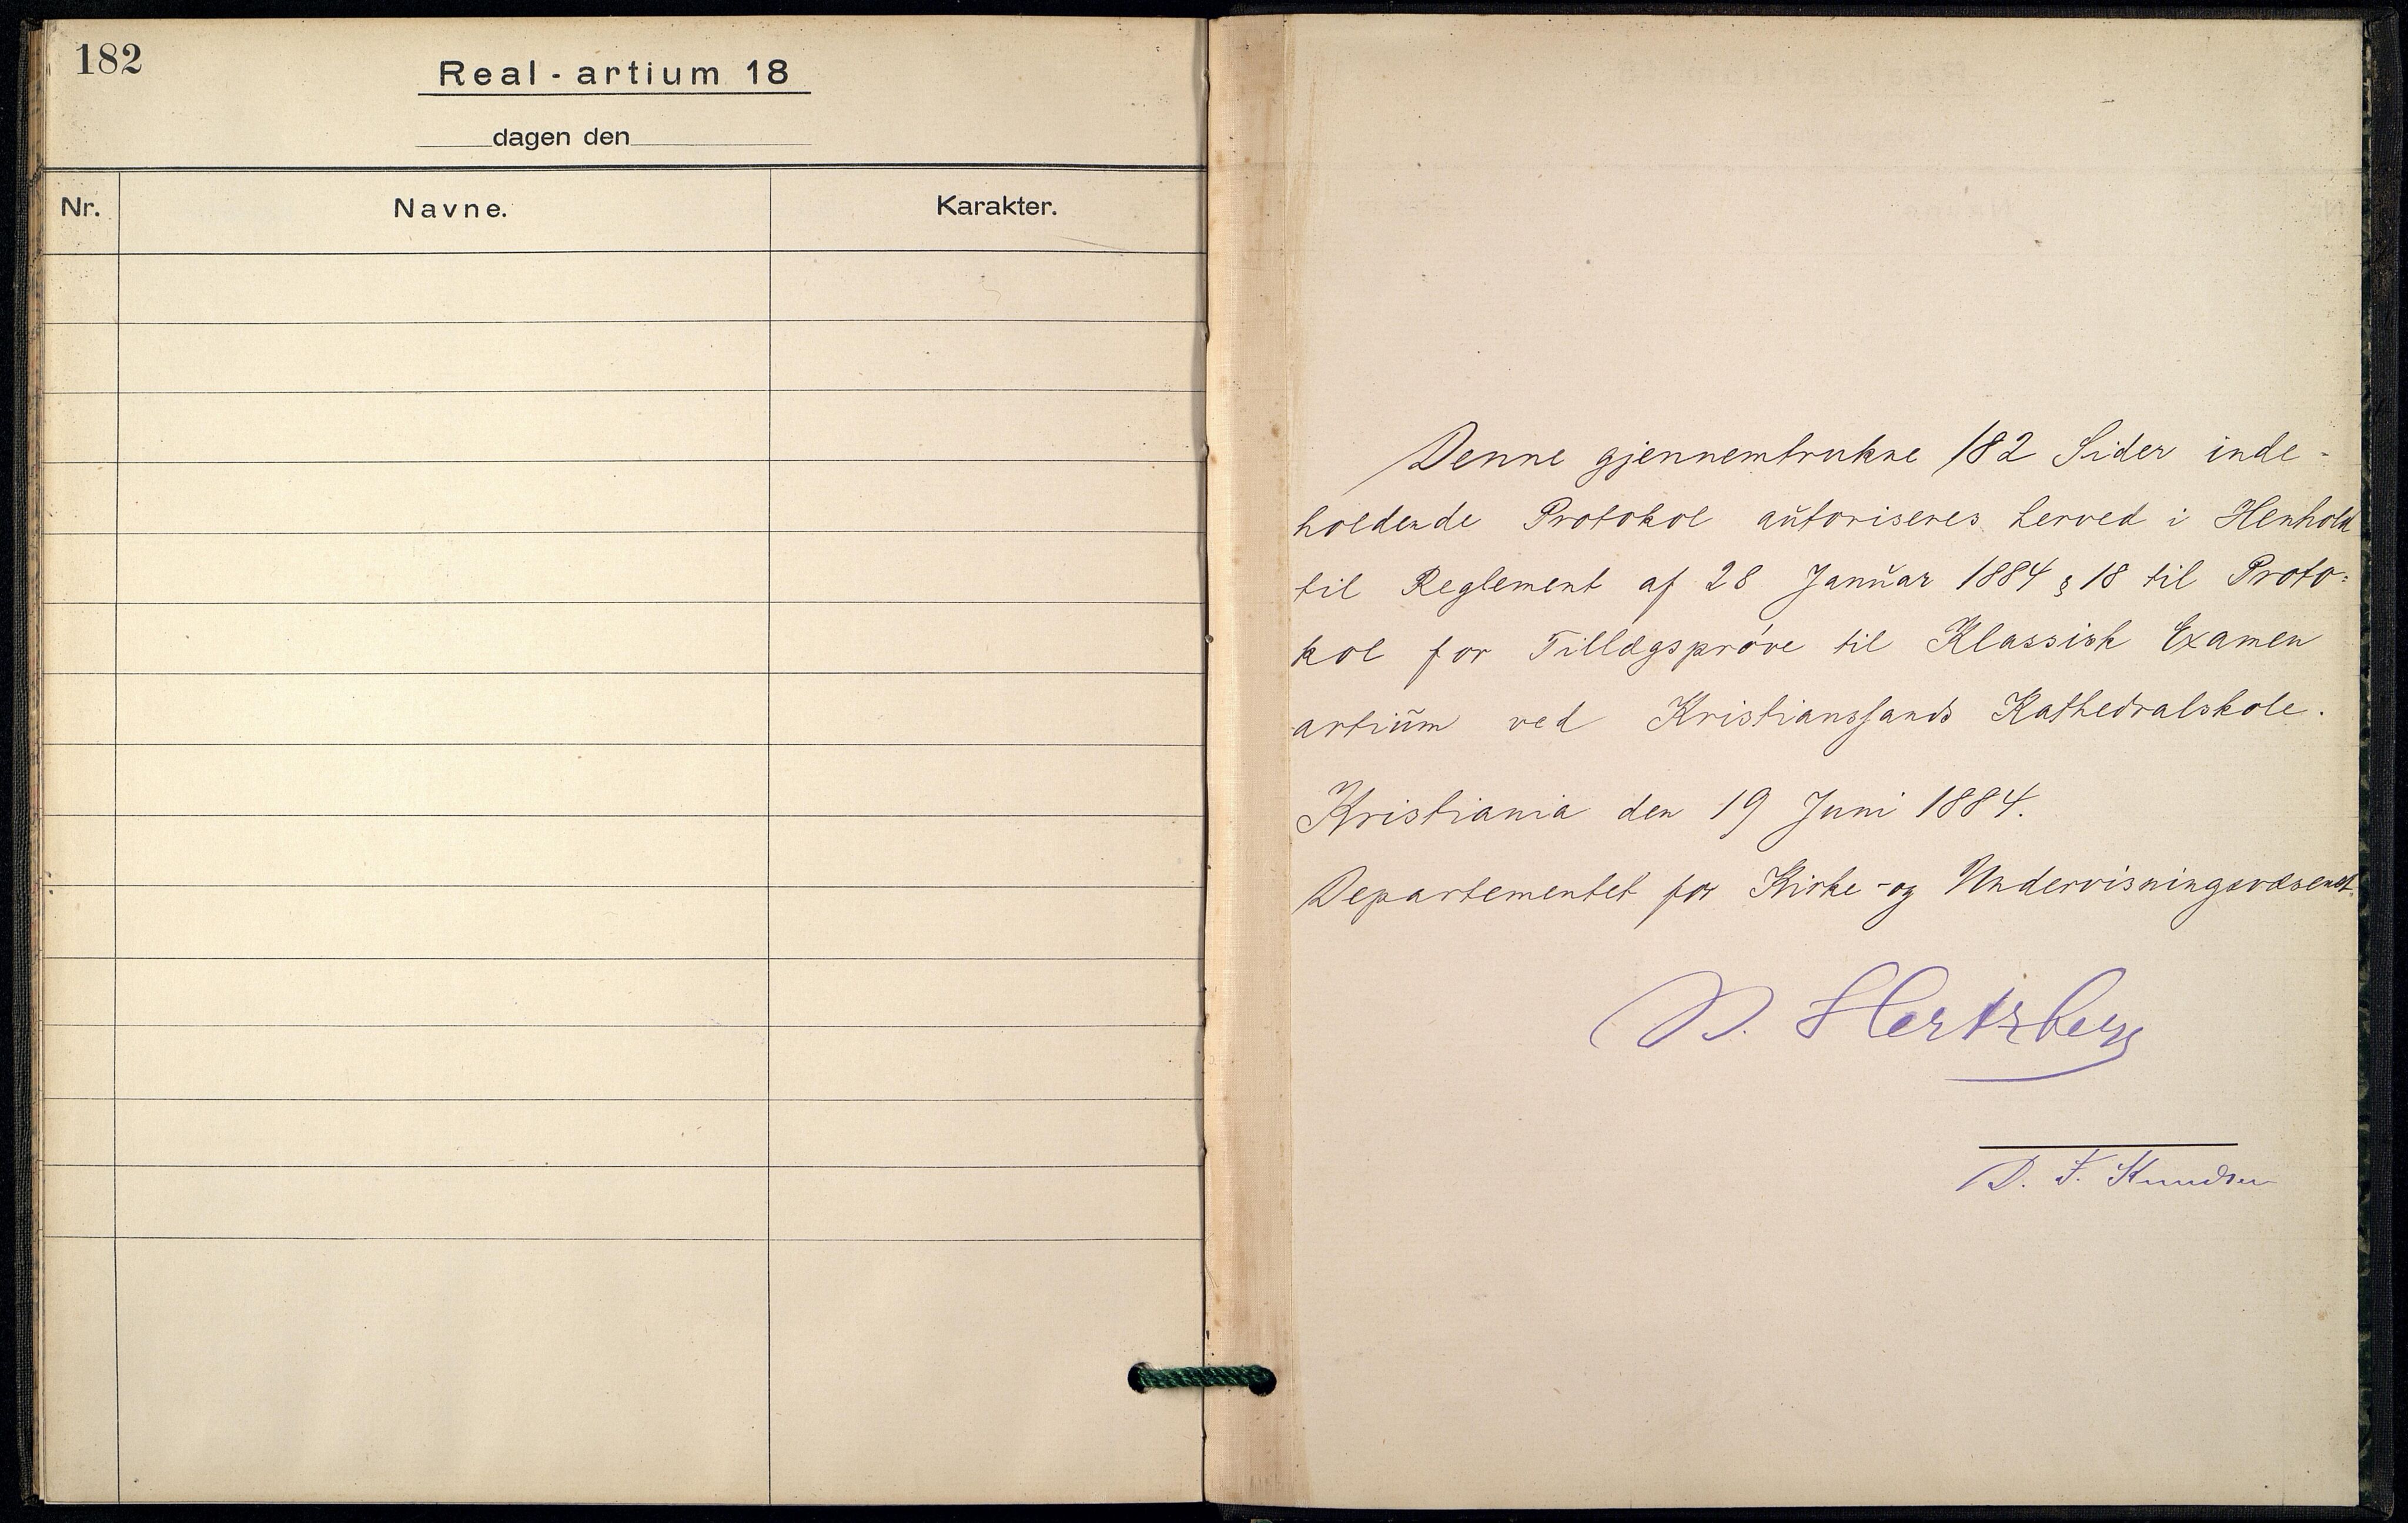 182
Real-artium 18
dagen den
Nr.
Navne.
Karakter.
Denne gjennemtrukne 182 Sider inde-
holdende Protokol autoriseres herved i Henhold
til Reglement af 28 Januar 1884 § 18 til Proto-
kol for Tillægsprøve til Klassisk Examen
artium ved Kristianssands Kathedralskole.
Kristiania den 19 Juni 1884.
Departementet for Kirke- og Undervisningsvæsenet.
N. Hertzberg
D. F. Knudsen